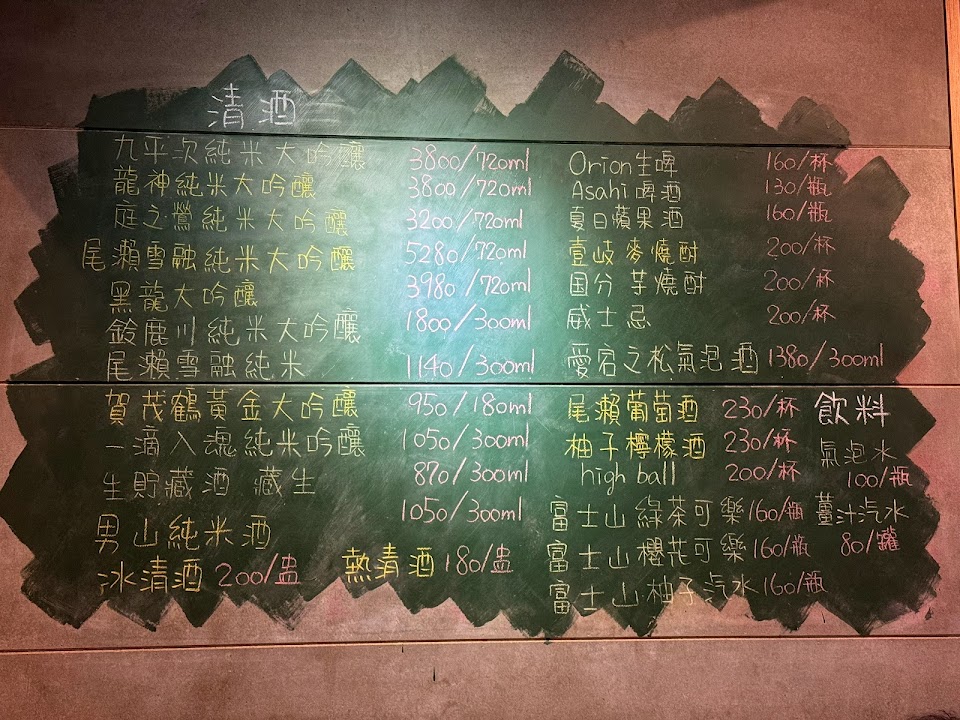 清酒
九平次純米大吟釀 3800/720ml
龍神純米大吟釀 3800/720ml
庭之鶯純米大吟釀 3200/720ml
尾瀨雪融純米大吟釀 5280/720ml
黑龍大吟釀 3980/720ml
鈴鹿川純米大吟釀 1800/300ml
尾瀨雪融純米 1140/300ml
賀茂鶴黃金大吟釀 950/180ml
一滴入魂純米吟釀 1050/300ml
生貯藏酒 藏生 870/300ml
男山純米酒 1050/300ml
冰清酒 200/盅 熱清酒 180/盅
Orion生啤 160/杯
Asahi啤酒 130/瓶
夏日蘋果酒 160/瓶
壹岐麥燒酎 200/杯
国分芋燒酎 200/杯
威士忌 200/杯
愛宕之松氣泡酒 1380/300ml
尾瀨葡萄酒 230/杯
柚子檸檬酒 230/杯
high ball 200/杯
富士山綠茶可樂 160/瓶
富士山櫻花可樂 160/瓶
富士山柚子汽水 160/瓶
飲料
氣泡水
100/瓶
薑汁汽水
80/罐